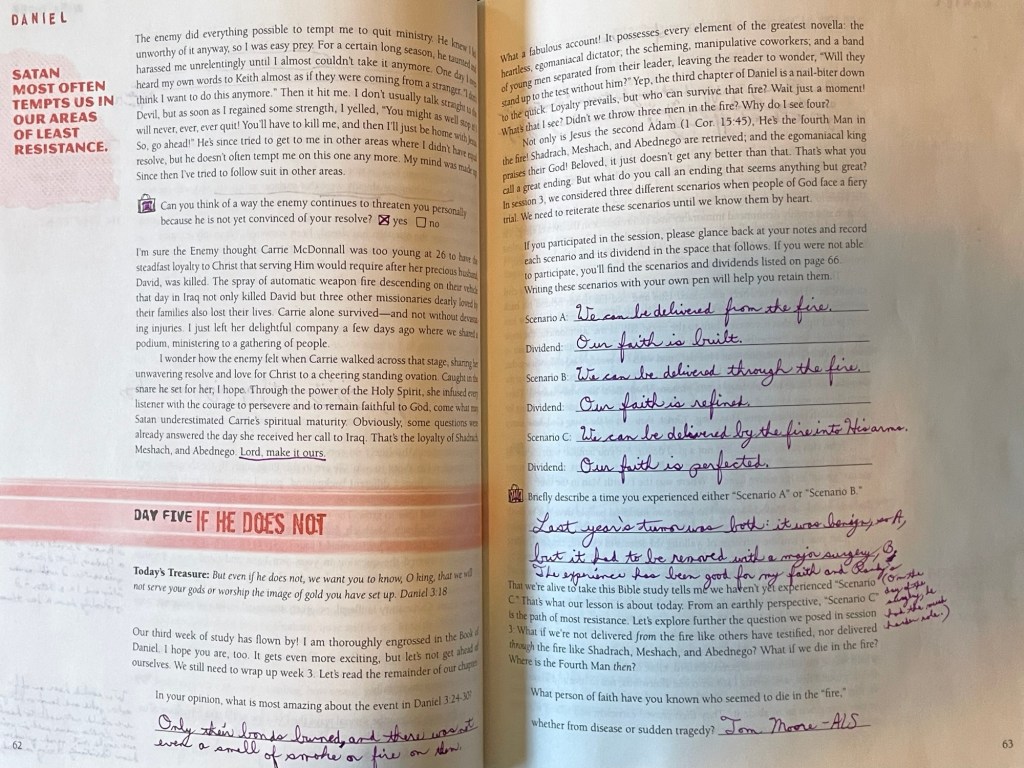 DANIEL
SATAN
MOST OFTEN
TEMPTS US IN
OUR AREAS
OF LEAST
RESISTANCE.
The enemy did everything possible to tempt me to quit ministry. He knew I
unworthy of it anyway, so I was easy prey. For a certain long season, he taunted
harassed me unrelentingly until I almost couldn't take it anymore. One day I
heard my own words to Keith almost as if they were coming from a stranger. "I
think I want to do this anymore." Then it hit me. I don't usually talk straight to the
Devil, but as soon as I regained some strength, I yelled, "You might as well stop
will never, ever, ever quit! You'll have to kill me, and then I'll just be home with
So, go ahead!" He's since tried to get to me in other areas where I didn't have
resolve, but he doesn't often tempt me on this one any more. My mind was made
Since then I've tried to follow suit in other areas.
Can you think of a way the enemy continues to threaten you personally
because he is not yet convinced of your resolve? ☒ yes ☐ no
I'm sure the Enemy thought Carrie McDonnall was too young at 26 to have the
steadfast loyalty to Christ that serving Him would require after her precious husband
David, was killed. The spray of automatic weapon fire descending on their vehicle
that day in Iraq not only killed David but three other missionaries dearly loved
their families also lost their lives. Carrie alone survived—and not without
ing injuries. I just left her delightful company a few days ago where we shared a
podium, ministering to a gathering of people.
I wonder how the enemy felt when Carrie walked across that stage, sharing her
unwavering resolve and love for Christ to a cheering standing ovation. Caught in the
snare he set for her, I hope. Through the power of the Holy Spirit, she infused every
listener with the courage to persevere and to remain faithful to God, come what may
Satan underestimated Carrie's spiritual maturity. Obviously, some questions were
already answered the day she received her call to Iraq. That's the loyalty of Shadrach
Meshach, and Abednego. Lord, make it ours.
DAY FIVE IF HE DOES NOT
Today's Treasure: But even if he does not, we want you to know, O king, that we will
not serve your gods or worship the image of gold you have set up. Daniel 3:18
Our third week of study has flown by! I am thoroughly engrossed in the Book of
Daniel. I hope you are, too. It gets even more exciting, but let's not get ahead of
ourselves. We still need to wrap up week 3. Let's read the remainder of our chapter
In your opinion, what is most amazing about the event in Daniel 3:24-30?
Only their bonds burned, and there was not
even a smell of smoke or fire on them.
62
What a fabulous account! It possesses every element of the greatest novella: the
heartless, egomaniacal dictator; the scheming, manipulative coworkers; and a band
of young men separated from their leader, leaving the reader to wonder, "Will they
stand up to the test without him?" Yep, the third chapter of Daniel is a nail-biter down
to the quick. Loyalty prevails, but who can survive that fire? Wait just a moment!
What's that I see? Didn't we throw three men in the fire? Why do I see four?
Not only is Jesus the second Adam (1 Cor. 15:45), He's the fourth Man in
the fire! Shadrach, Meshach, and Abednego are retrieved; and the egomaniacal king
praises their God! Beloved, it just doesn't get any better than that. That's what you
call a great ending. But what do you call an ending that seems anything but great?
In session 3, we considered three different scenarios when people of God face a fiery
trial. We need to reiterate these scenarios until we know them by heart.
If you participated in the session, please glance back at your notes and record
each scenario and its dividend in the space that follows. If you were not able
to participate, you'll find the scenarios and dividends listed on page 66.
Writing these scenarios with your own pen will help you retain them.
Scenario A: We can be delivered from the fire.
Dividend: Our faith is built.
Scenario B: We can be delivered through the fire.
Dividend: Our faith is refined.
Scenario C: We can be delivered by the fire into His arms.
Dividend: Our faith is perfected.
Briefly describe a time you experienced either "Scenario A" or "Scenario B."
Last year's tumor was both: it was benign, so A,
but it had to be removed with a major surgery, B.
The experience has been good for my faith and
(On the
day of the
surgery, he
had the much
harder role.)
That we're alive to take this Bible study tells me we haven't yet experienced "Scenario
C." That's what our lesson is about today. From an earthly perspective, "Scenario C"
is the path of most resistance. Let's explore further the question we posed in session
3. What if we're not delivered from the fire like others have testified, nor delivered
through the fire like Shadrach, Meshach, and Abednego? What if we die in the fire?
Where is the Fourth Man then?
What person of faith have you known who seemed to die in the "fire,"
whether from disease or sudden tragedy? Tom Moore - ALS
63